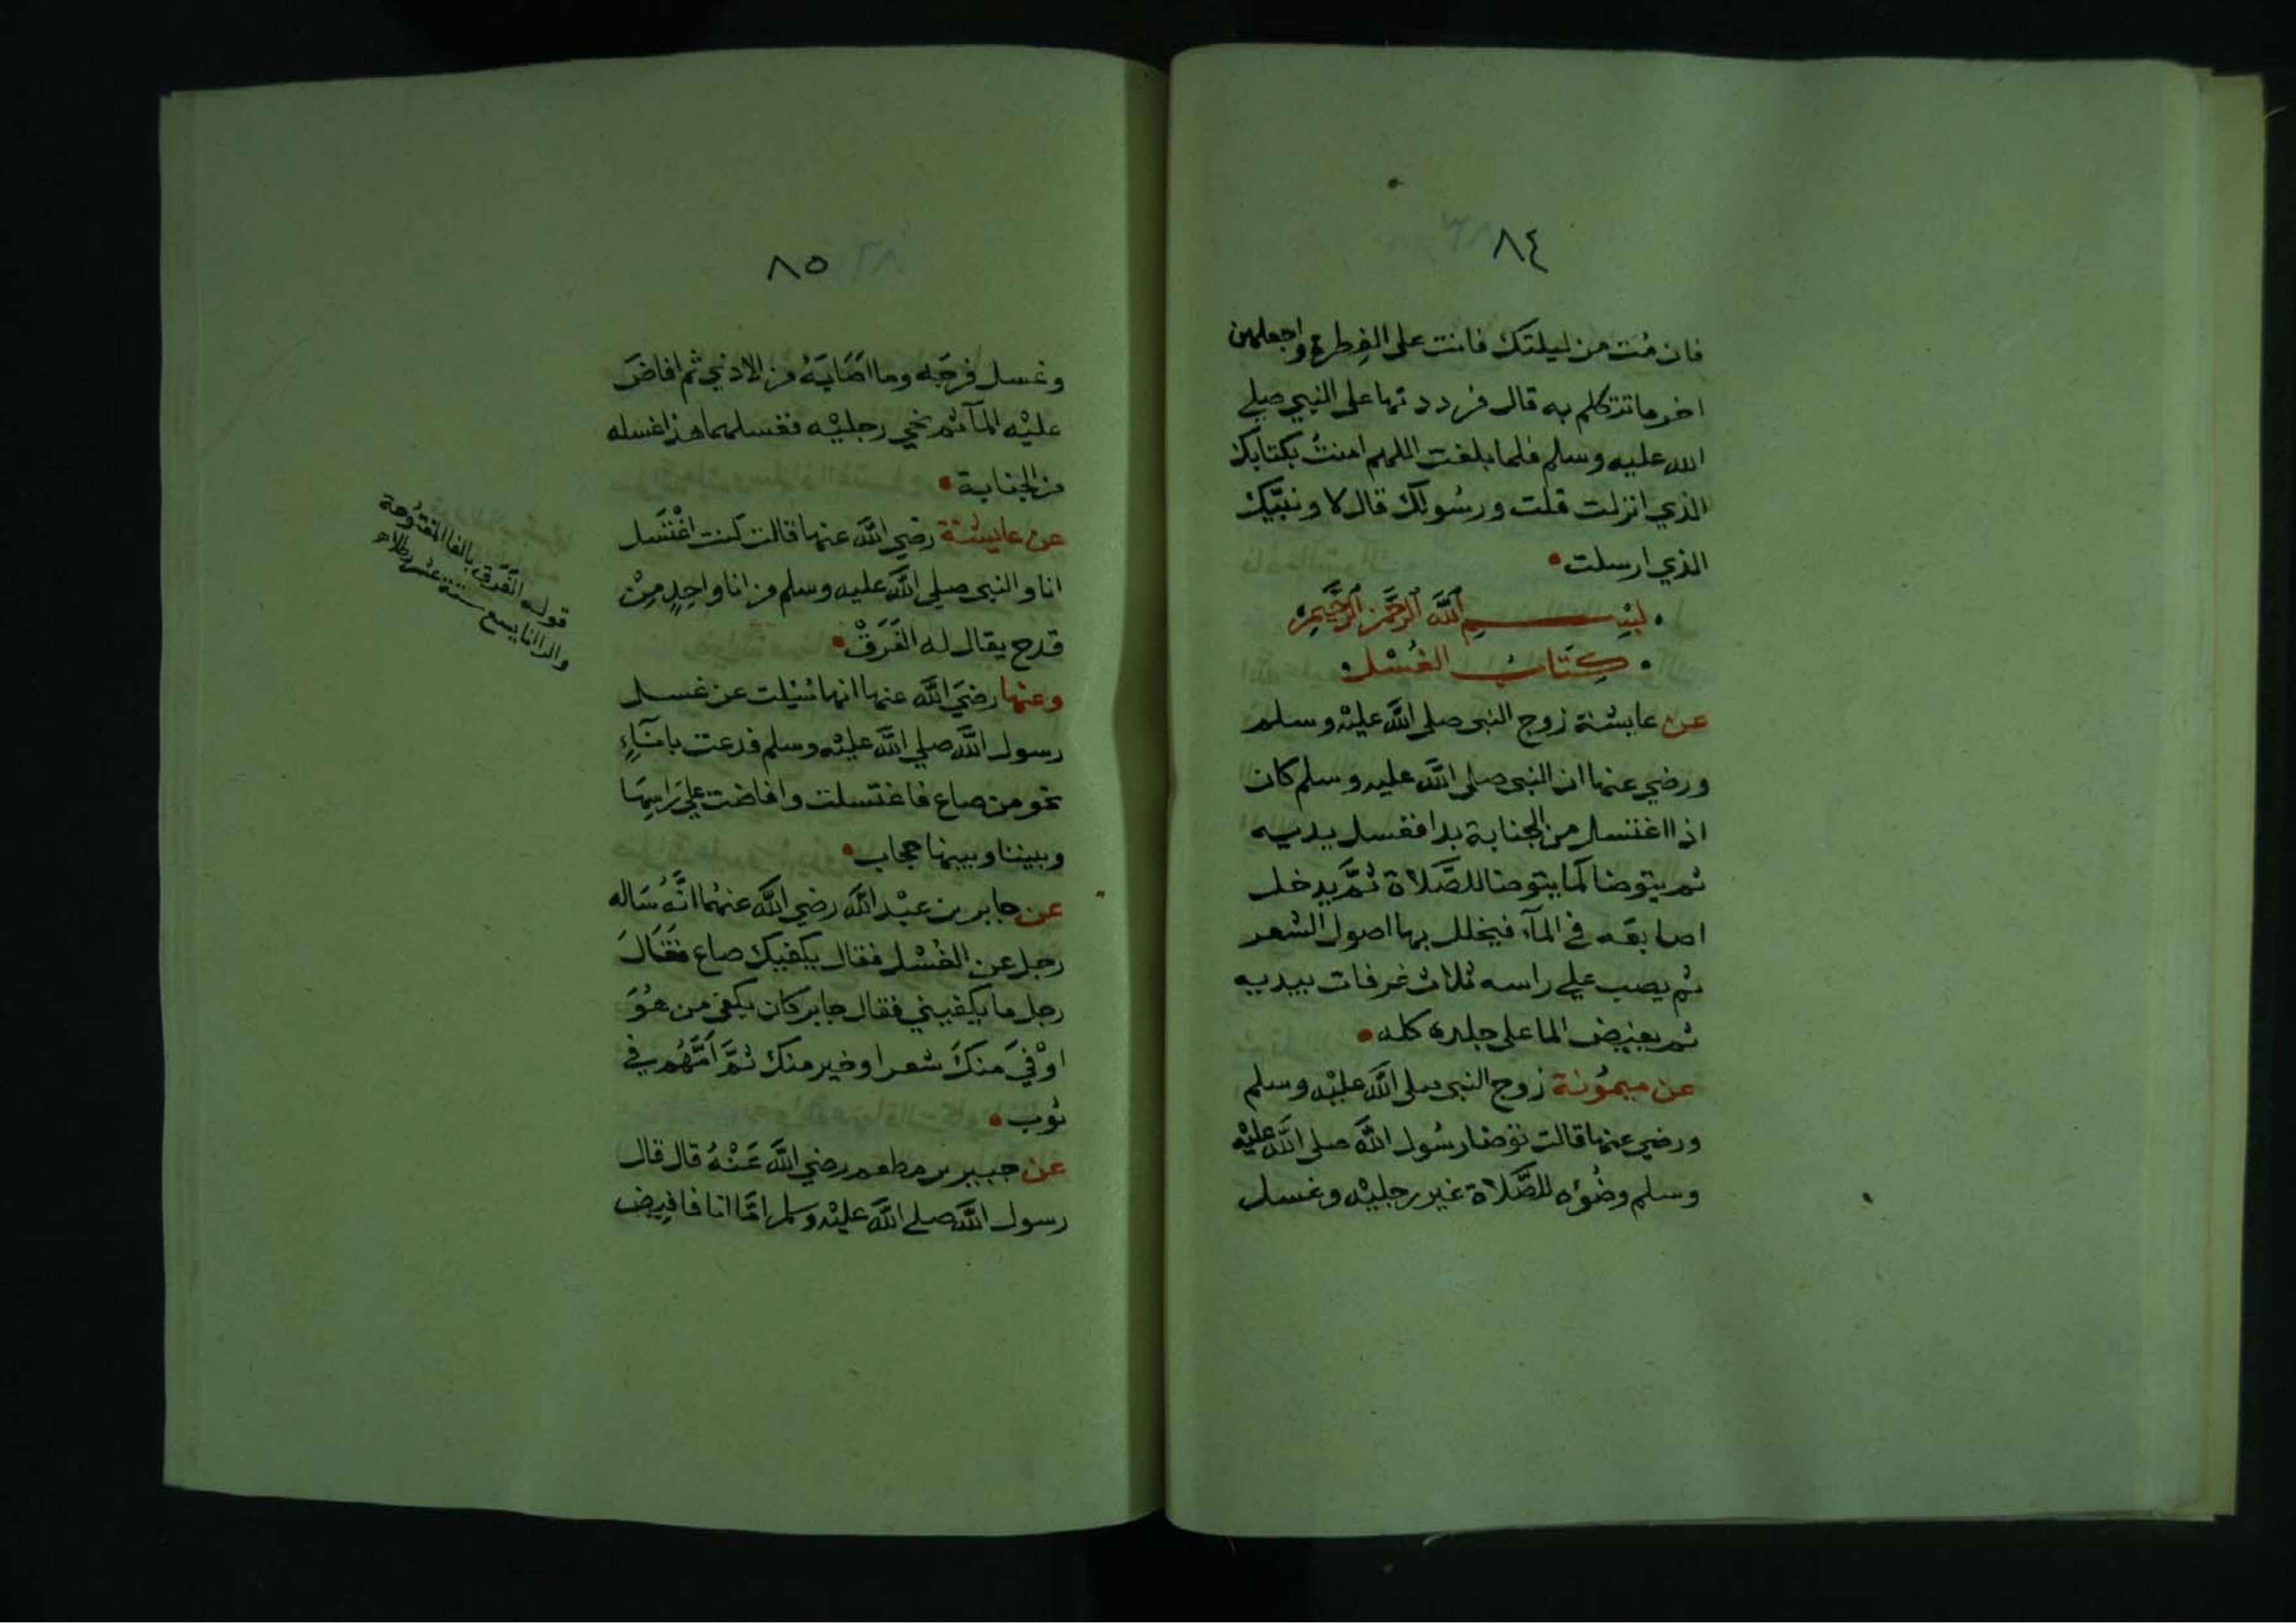 ٨٤
فان مُت من ليلتك فانت على الفِطرة واجعلهن
اخر ما تتكلم به قال فرددتها على النبي صلى
الله عليه وسلم فلما بلغت اللهم امنتُ بكتابك
الذي انزلت قلت ورسُولك قال لا ونبيّك
الذي ارسلت
بسم الله الرحمن الرحيم
كتابُ الغُسْل
عن عايشة زوج النبي صلى الله عليْه وسلم
ورضي عنها ان النبي صلى الله عليه وسلم كان
اذا اغتسل من الجنابة بدا فغسل يديه
ثم يتوضا كما يتوضا للصَّلاة ثمَّ يدخل
اصابعَه في المآء فيخلل بها اصول الشعر
ثم يصب على راسه ثلاث غرفات بيديه
ثم يفيض الما على جلده كله
عن ميمُونة زوج النبي صلى الله عليْه وسلم
ورضي عنها قالت توضا رسُول الله صلى الله عليْه
وسلم وضُوءه للصَّلاة غير رجليْه وغسل
٨٥
وغسل فرجَه وما اصَابَهُ من الاذي ثم افاضَ
عليْه المآ ثم نحي رجليْه فغسلهما هذا غسله
من الجنابة
عن عايشة رضي الله عنها قالت كنت اغْتَسل
انا والنبي صلى الله عليه وسلم من انا واحِدٍ مِنْ
قدح يقال له الفَرَقْ
وعنها رضيَ الله عنها انها سُئِلت عن غسل
رسول الله صلى الله عليْه وسلم فدعت بانآءٍ
نحو من صاع فاغتسلت وافاضت على رَاسِهَا
وبيننا وبينها حجاب
عن جابر بن عبْد الله رضي الله عنهُما انَّهُ سَاله
رجل عن الغُسْل فقال يكفيك صاع فقالَ
رجل ما يكفيني فقال جابر كان يكفي من هُوَ
اوْفيَ منكَ شعرا وخير منك ثمَّ اَمَّهُم في
ثوب
عن جبير بن مطعم رضي الله عَنْهُ قال قال
رسول الله صلى الله عليْه وسلم امَّا انا فافيض
قوله الفَرَق بالفا المفتُوحة
والرا انا يسع ستة عشر رطلا اه